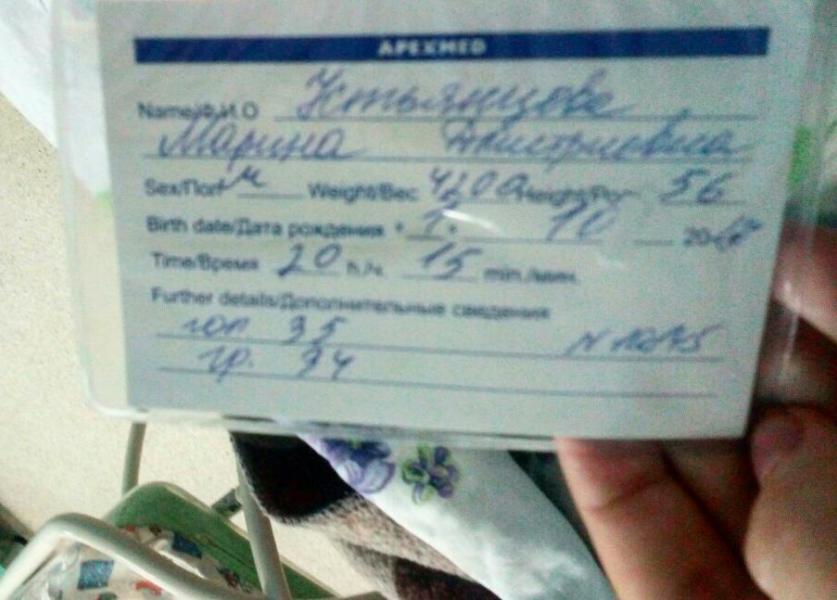 APEXMED
Name/Ф.И.О Устьянцева
Марина Дмитриевна
Sex/Пол м Weight/Вес 4200 Height/Рост 56
Birth date/Дата рождения 10 20
Time/Время 20 h./ч. 15 min./мин.
Further details/Дополнительные сведения
гол 35
гр. 34